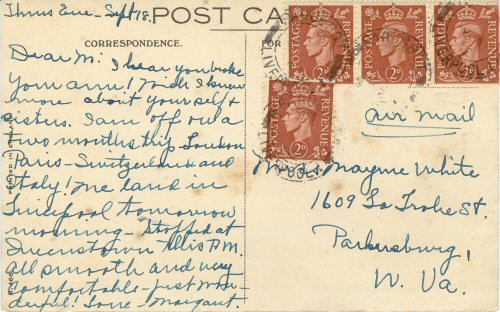 Thurs Eve - Sept 18.
POST CA
CORRESPONDENCE.
OR
Dear M: I hear you broke
your arm! Wish I knew
more about yourself &
sisters. I am off on a
two months trip London
Paris - Switzerland and
Italy! We land in
Liverpool tomorrow
morning - Stopped at
Queenstown this P.M.
All smooth and very
comfortable - just won-
derful! Love - Margaret.
POSTAGE REVENUE
2D
POSTAGE REVENUE
2D
POSTAGE REVENUE
2D
POSTAGE REVENUE
2D
air mail
Mayme White
1609 La Trobe St.
Parkersburg,
W. Va.
PRINTED IN